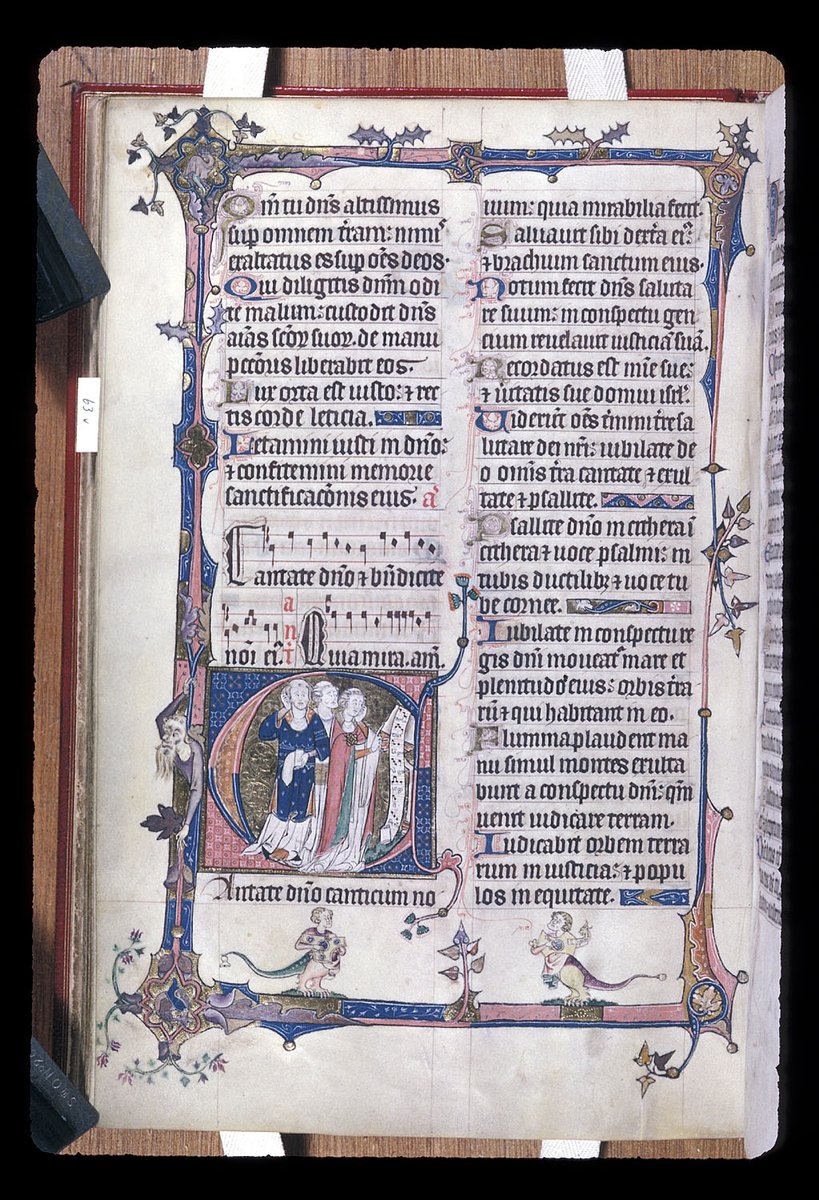 Qm̄ tu dn̄s altissimus
sup omnem t̄ram: nimis
exaltatus es sup om̄s deos.
Qui diligitis dnm̄ odi
te malum: custodit dn̄s
aīas sc̄oꝝ suoꝝ. de manu
peccōris liberabit eos.
Lux orta est iusto: ⁊ rec
tis corde leticia.
Letamini iusti in dn̄o:
⁊ confitemini memorie
sanctificac̄onis eius. a͂
Cantate dn̄o ⁊ bn̄dicite
a
n
noī ei᷒. t̄ Quia mira. am̄.
Cantate dn̄o canticum no
uum: quia mirabilia fecit.
Saluauit sibi dext̄a ei᷒:
⁊ brachium sanctum eius.
Notum fecit dn̄s saluta
re suum: in conspectu gen
cium reuelauit iusticiā suā.
Recordatus est mīe sue:
⁊ ūitatis sue domui isrl̄.
Viderūt om̄s t̄mini t̄re sa
lutare dei nr̄i: iubilate de
o om̄is t̄ra cantate ⁊ exul
tate ⁊ psallite.
Psallite dn̄o in cithera ī
cithera ⁊ uoce psalmi: in
tubis ductilibꝫ ⁊ uoce tu
be cornee.
Iubilate in conspectu re
gis dn̄i moueat᷑ mare et
plenitudo eius: orbis t̄ra
rū ⁊ qui habitant in eo.
Flumina plaudent ma
nu simul montes exulta
bunt a conspectu dn̄i: qm̄
uenit iudicare terram.
Iudicabit orbem terra
rum in iusticia: ⁊ popu
los in equitate.
63 v